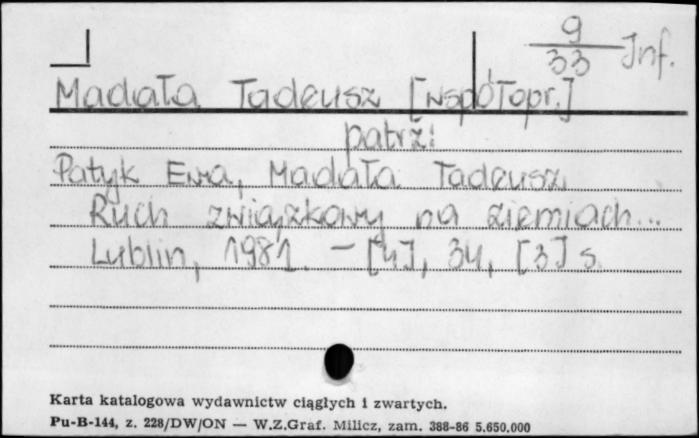 9
33 Inf.
Madała Tadeusz [współopr.]
patrz:
Patyk Ewa, Madała Tadeusz
Ruch związkowy na ziemiach...
Lublin, 1981. – [4], 34, [3] s.
Karta katalogowa wydawnictw ciągłych i zwartych.
Pu-B-144, z. 228/DW/ON — W.Z.Graf. Milicz, zam. 388-86 5.650.000